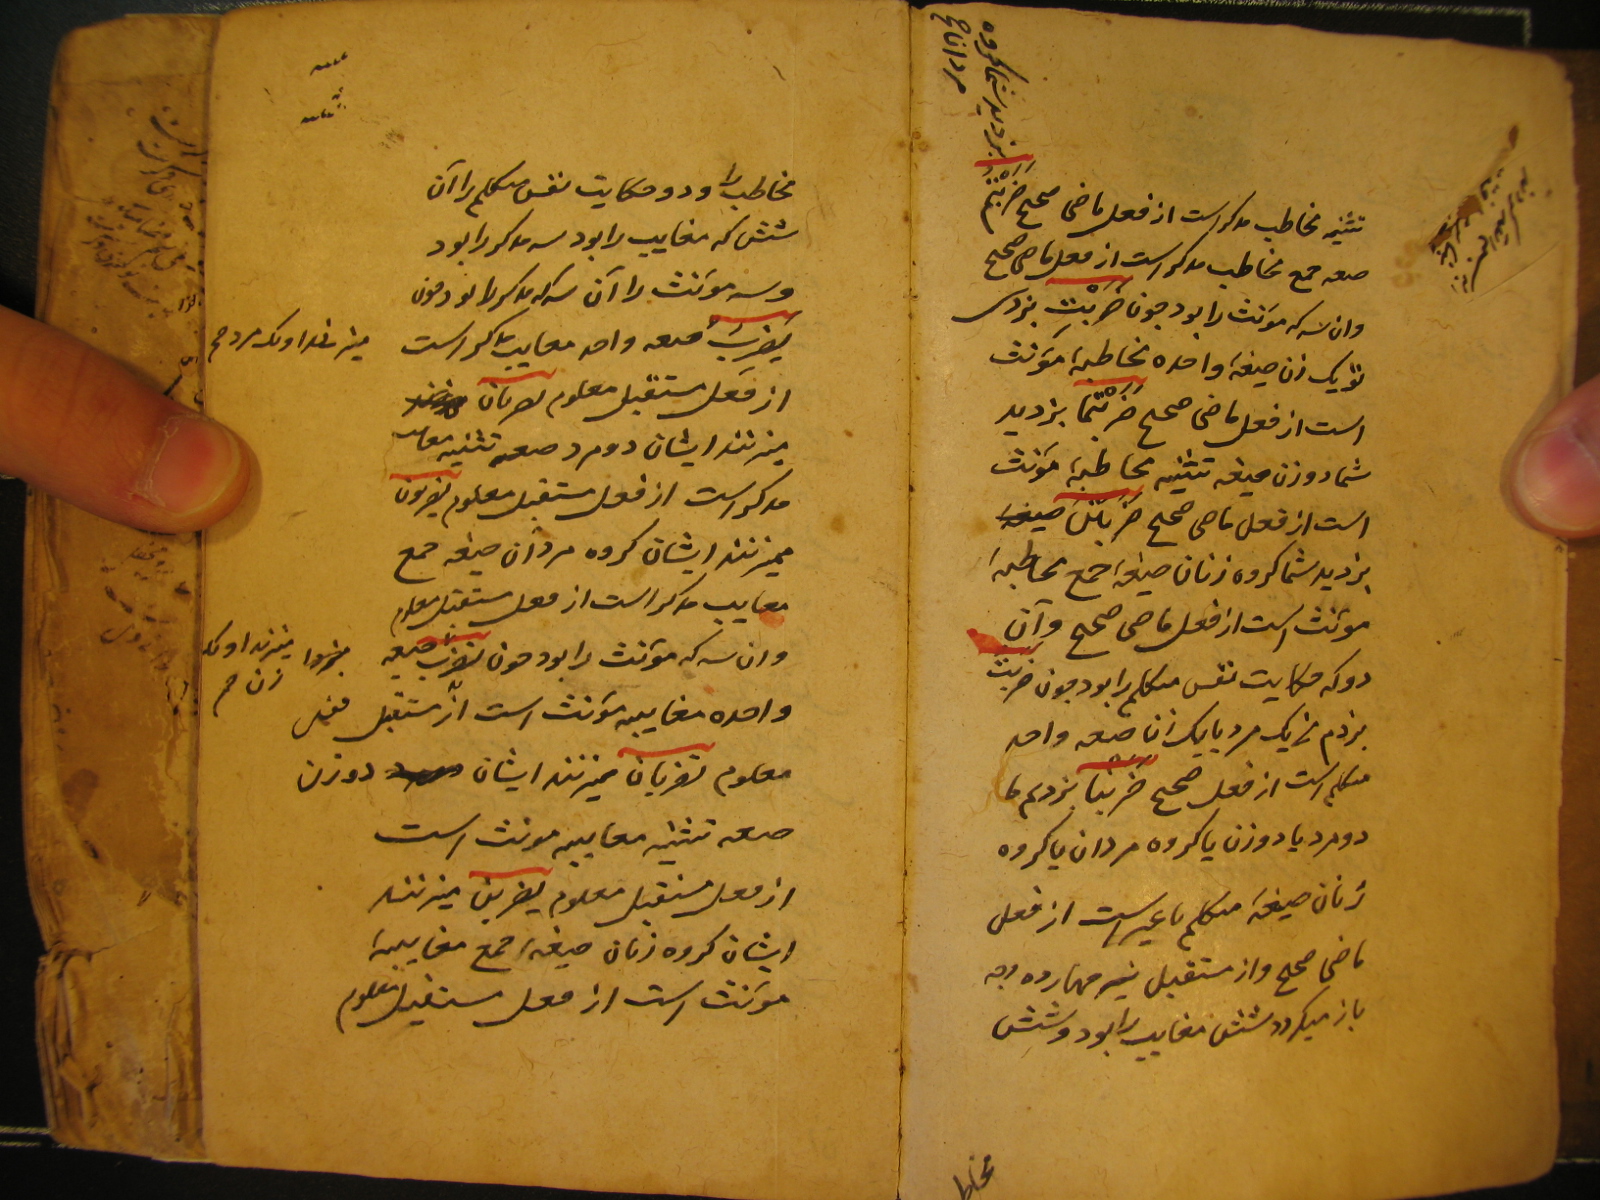 بزدید شما کروه
مردان ح
تثنیه مخاطب مذکر است از فعل ماضی صحیح ضربتم
صیغه جمع مخاطب مذکر است از فعل ماضی صحیح
وان سه که مؤنث را بود جون ضربتِ بزدی
تو یک زن صیغهٔ واحده مخاطبهٔ مؤنث
است از فعل ماضی صحیح ضربتما بزدید
شما دو زن صیغه تثنیه مخاطبهٔ مؤنث
است از فعل ماضی صحیح ضربتن صیغه
بزدید شما کروه زنان صیغهٔ جمع مخاطبهٔ
مؤنث است از فعل ماضی صحیح و آن
دو که حکایت نفس متکلم را بود جون ضربت
بزدم من یک مرد یا یک زن صیغه واحد
متکلم است از فعل صحیح ضربنا بزدیم ما
دو مرد یا دو زن یا کروه مردان یا کروه
زنان صیغهٔ متکلم با غیر است از فعل
ماضی صحیح و از مستقبل نیز جهارده وجه
باز میکردد شش مغایب را بود و شش
مخاط
مخاطب را و دو حکایت نفس متکلم را آن
شش که مغایب را بود سه مذکر را بود
و سه مؤنث را آن سه که مذکر را بود جون
یضرب صیغه واحد مغایب مذکر است
میزند او یک مرد صح
از فعل مستقبل معلوم یضربان
میزنند ایشان دو مرد صیغه تثنیه مغایب
مذکر است از فعل مستقبل معلوم یضربون
میزنند ایشان کروه مردان صیغه جمع
مغایب مذکر است از فعل مستقبل معلوم
وان سه که مؤنث را بود جون تضرب صیغه
میزند او یک
زن صح
واحده مغایبه مؤنث است از مستقبل فعل
معلوم تضربان میزنند ایشان دو زن
صیغه تثنیه مغایبه مونث است
از فعل مستقبل معلوم یضربن میزنند
ایشان کروه زنان صیغهٔ جمع مغایبهٔ
مؤنث است از فعل مستقبل معلوم